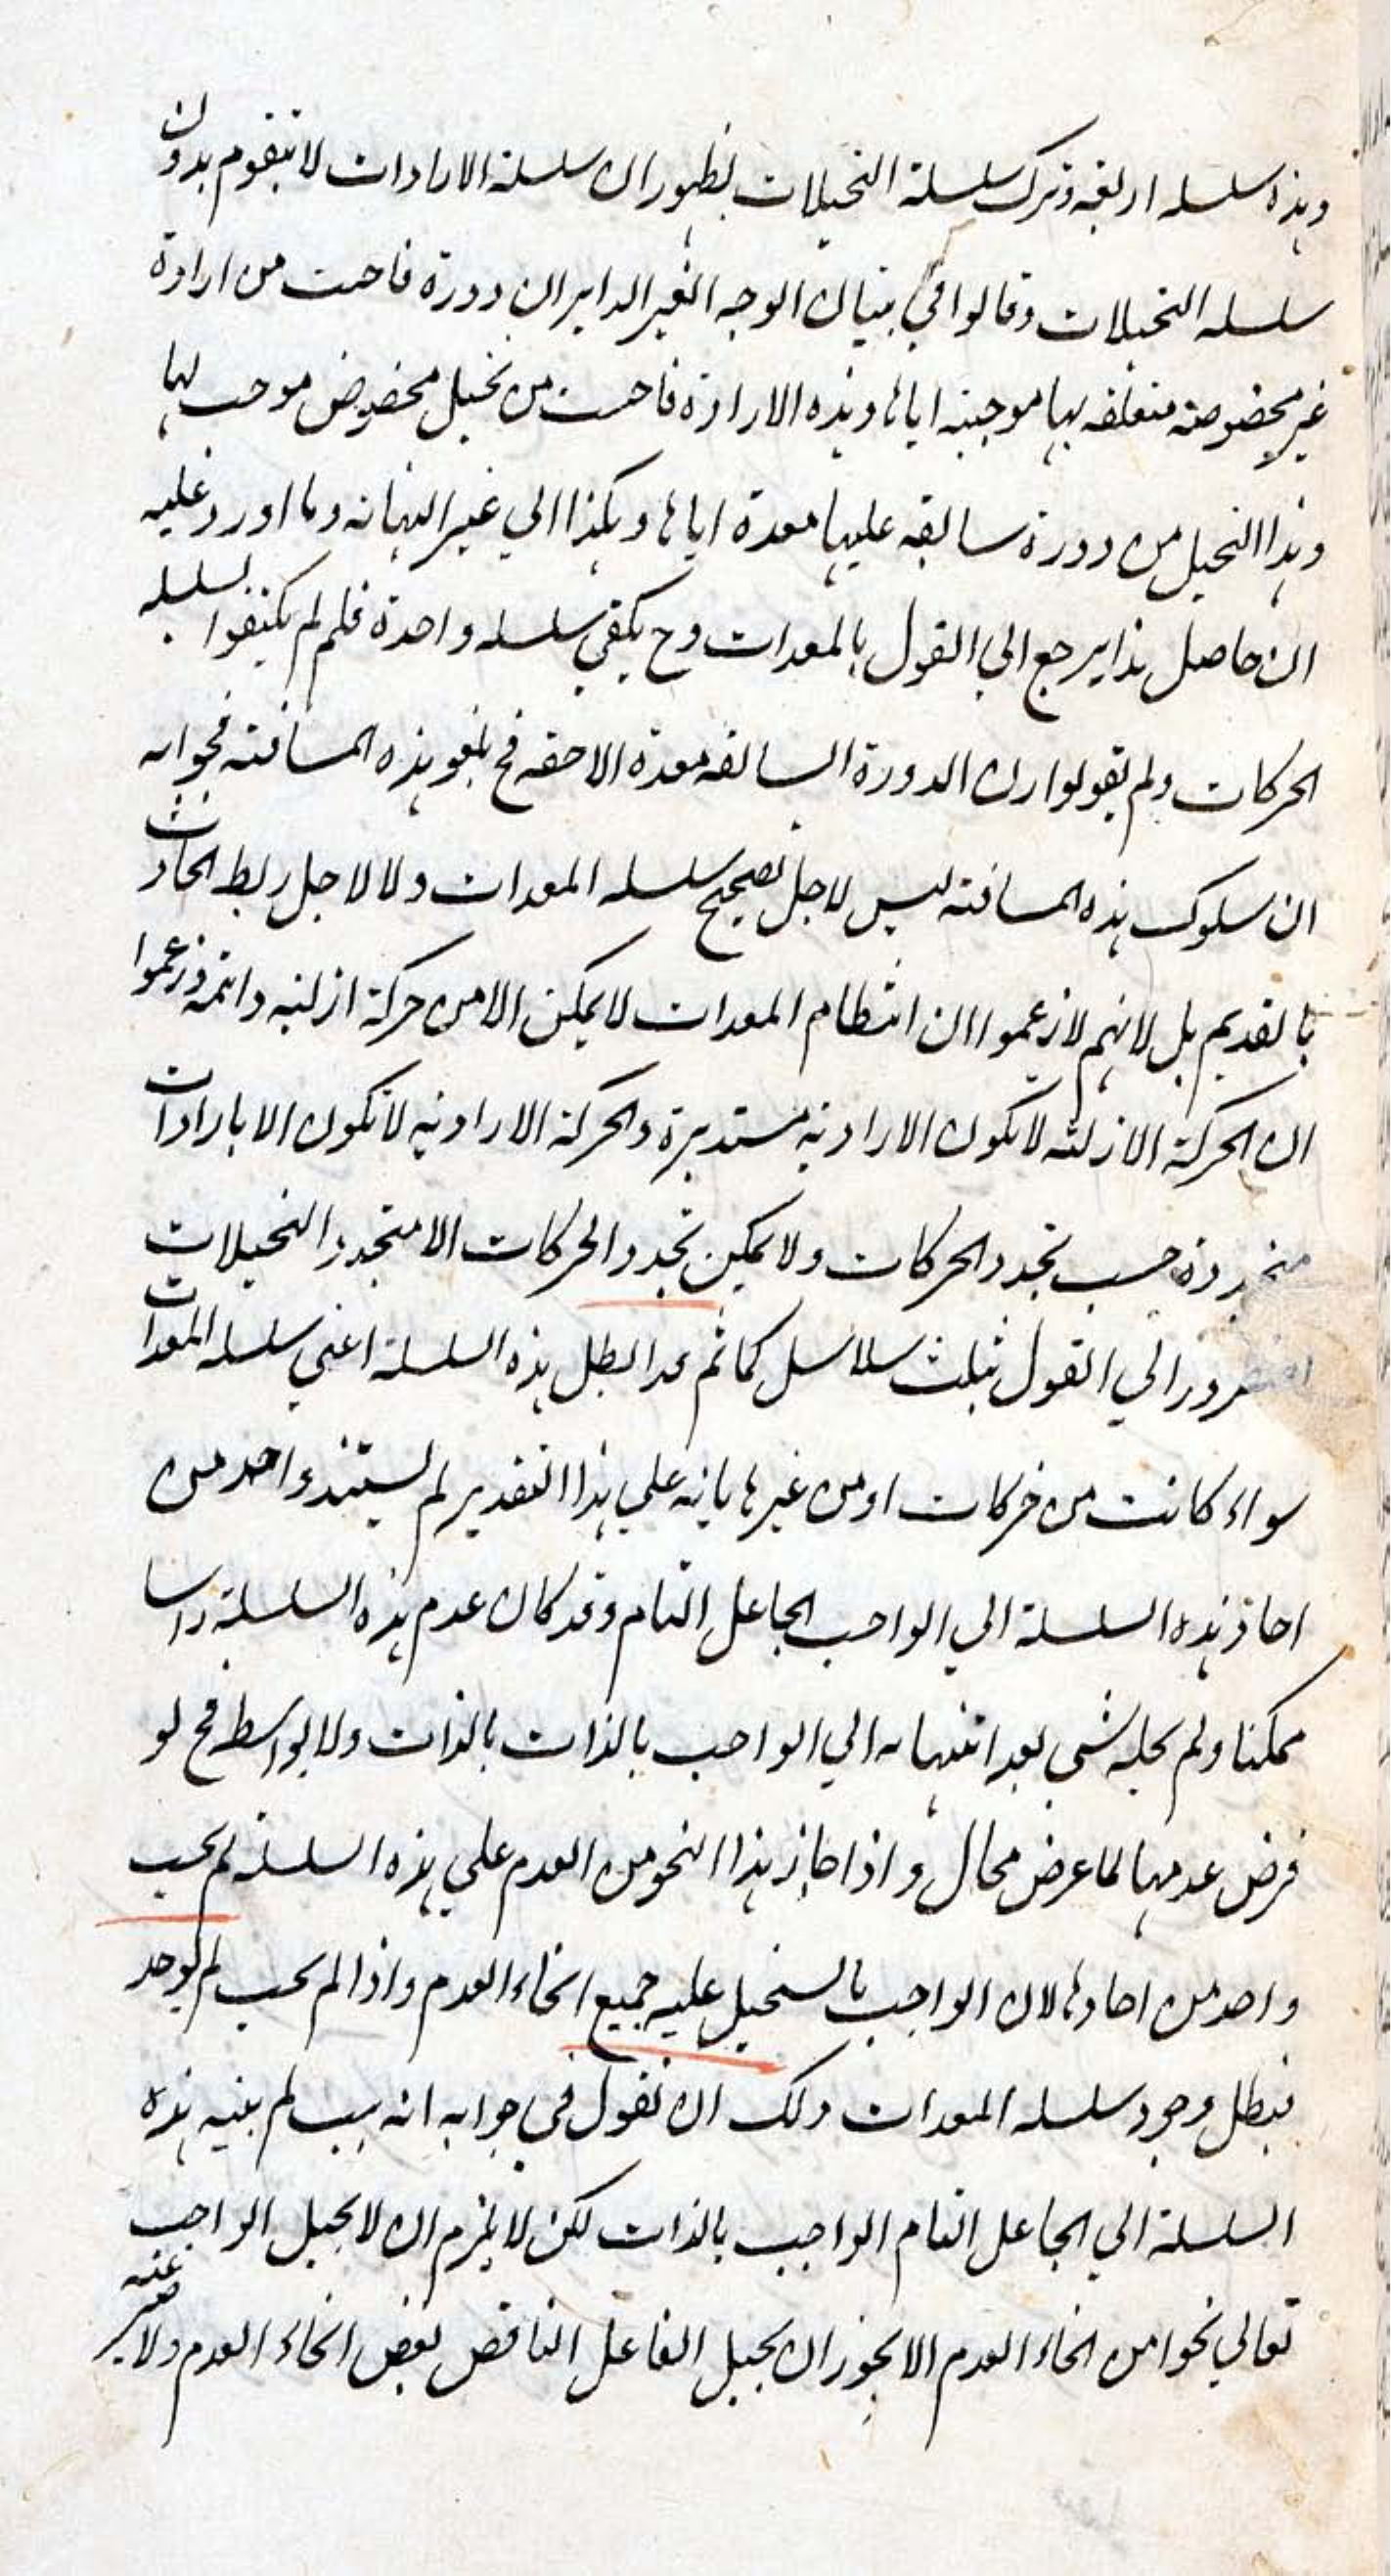 وهذه سلسله اربعة وترك سلسلة التخيلات لظهور ان سلسلة الارادات لا تتقوم بدون
سلسله التخيلات وقالوا في بيان الوجه الغير الداير ان دورة فاضت من ارادة
غير مخصوصة متعلقه بها موجبة اياها وهذه الارادة فاضت من تخيل مخصوص موجب لها
وهذا التخيل من دورة سابقه عليها معدة اياها وهكذا الي غير النهاية وما اورد عليه
ان حاصل هذا يرجع الي القول بالمعدات وح يكفي سلسله واحدة فلم لم يكتفوا بسلسله
الحركات ولم يقولوا ان الدورة السابقه معدة الاحقه فح يلغو هذه المسافته فجوابه
ان سلوك هذه المسافته ليس لاجل تصحيح سلسله المعدات ولا لاجل ربط الحادث
بالقديم بل لانهم لا زعموا ان انتظام المعدات لا يمكن الا من حركة ازلية دائمة وزعموا
ان الحركة الازلية لا تكون الا ارادية مستديرة والحركة الارادية لا تكون الا بارادات
متجددة حسب تجدد الحركات ولا يمكن تجدد الحركات الا متجدد التخيلات
الي القول بثلث سلاسل كما ثم قد ابطل هذه السلسلة اعني سلسله المعدات
سواء كانت من حركات او من غيرها بانه علي هذا التقدير لم يستند واحد من
احاد هذه السلسلة الي الواجب الجاعل التام وقد كان عدم هذه السلسلة راسا
ممكنا ولم يحله شي بعد انتهائه الي الواجب بالذات بالذات ولا بالواسط فح لو
فرض عدمها لما عرض محال واذا جاز هذا النحو من العدم علي هذه السلسلة لم يجب
واحد من احادها لان الواجب ما يستحيل عليه جميع انحاء العدم واذا لم يجب لم يوجد
فبطل وجود سلسله المعدات ولك ان تقول في جوابه انه سبب لم ينته هذه
السلسلة الي الجاعل التام الواجب بالذات لكن لا يلزم ان لا يحيل الواجب
تعالي نحوا من انحاء العدم الا يجوز ان يحيل الفاعل الناقص بعض انحاء العدم ولا ضير عنه